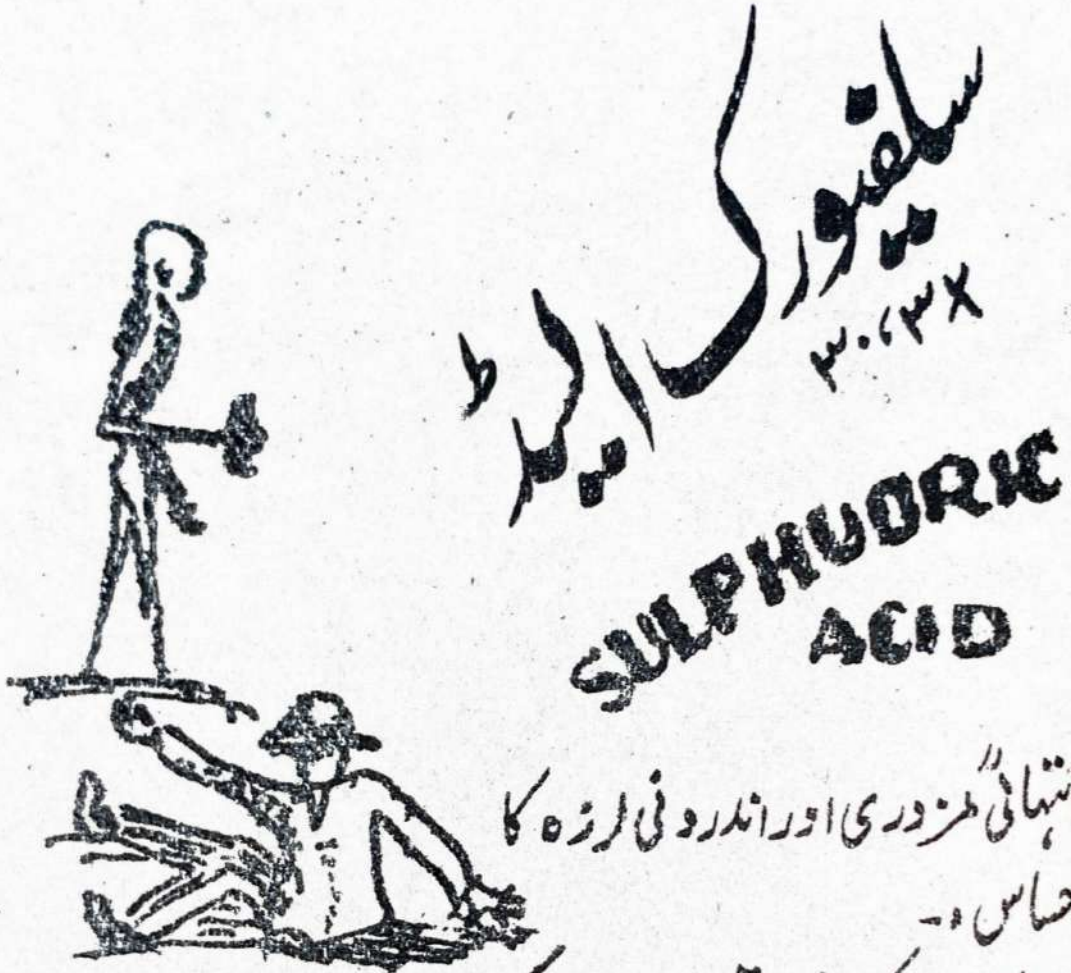 سلفیورک ایسڈ
۳۰،۳X
SULPHUORIC
ACID
نتہائی کمزوری اور اندرونی لرزہ کا
حساس :-